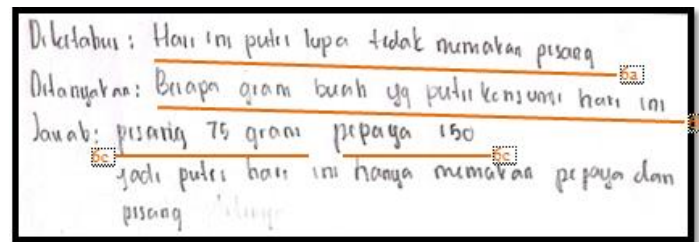 Diketahui: Hari ini putri lupa tidak memakan pisang
6a
Ditanyakan: Berapa gram buah yg putri konsumsi hari ini
Jawab: pisang 75 gram pepaya 150
6c 6c
jadi putri hari ini hanya memakan pepaya dan
pisang